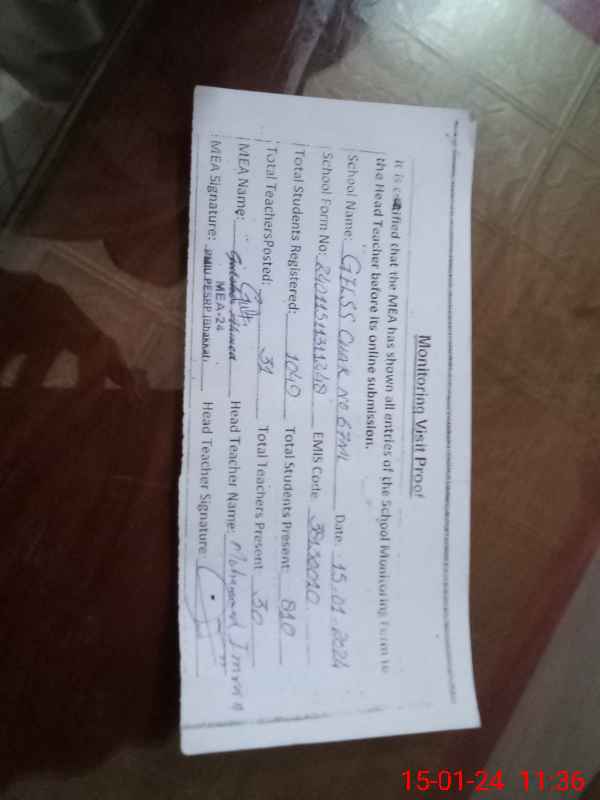 Monitoring Visit Proof
It is certified that the MEA has shown all entries of the School Monitoring Form to
the Head Teacher before its online submission.
School Name: GHSS Chak No 67ML Date: 15.01.2024
School Form No: EMIS Code 39130010
Total Students Registered: 1040 Total Students Present: 810
Total Teachers Posted: 31 Total Teachers Present 30
MEA Name: Ahmed Head Teacher Name: Muhammad Imran
MEA Signature: MEA-24 Head Teacher Signature:
PMIU PESRP (Bhakkar)
15-01-24 11:36